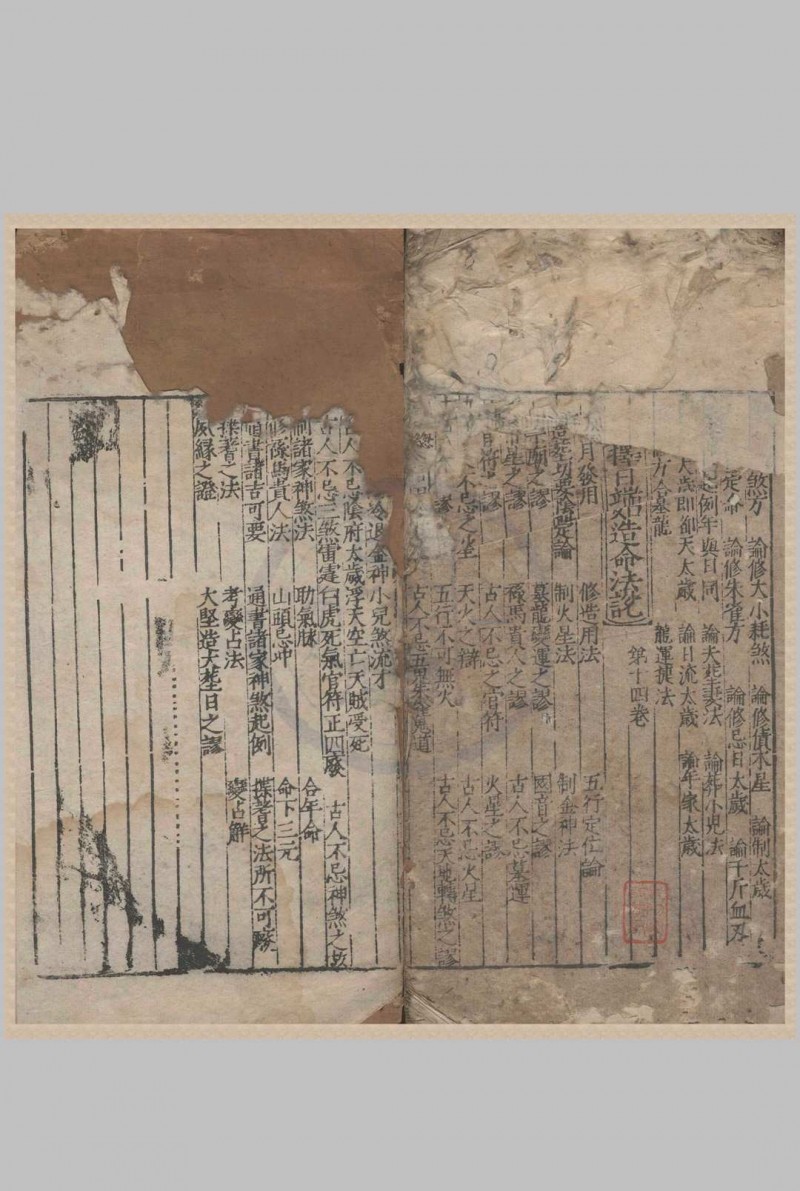 煞方　論修大小耗煞　論修債木星　論制太歲
定命　論修朱雀方　論修忌日太歲　論千斤血刃
起例年與日同　論天
太歲即御天太歲　論日流太歲　論年家太歲
方合墓龍　龍運捷法
擇日端造命法說　第十四卷
月發用　修造用法　五行定位論
造葬功要陰騭論　制火星法　制金神法
之謬　墓龍變運之謬　國音之謬
星之謬　祿馬貴人之謬　古人不忌墓運
官符之謬　古人不忌之官符　火星之謬
不忌之星　天火之謬　古人不忌火星
謬　五行不可無火　古人不忌天地轉煞之謬
古人不忌
冷退金神小兒煞流才
古人不忌陰府太歲浮天空亡天賊受死
古人不忌三煞雷霆白虎死氣官符正四廢　古人不忌神煞之
制諸家神煞法　助氣脉　合年命
修祿馬貴人法　山頭忌冲　命下三元
通書諸吉可要　通書諸家神煞起例　揲蓍之法所不可廢
揲蓍之法　考變占法　變占解
夙緣之證　大堅造天塟日之謬